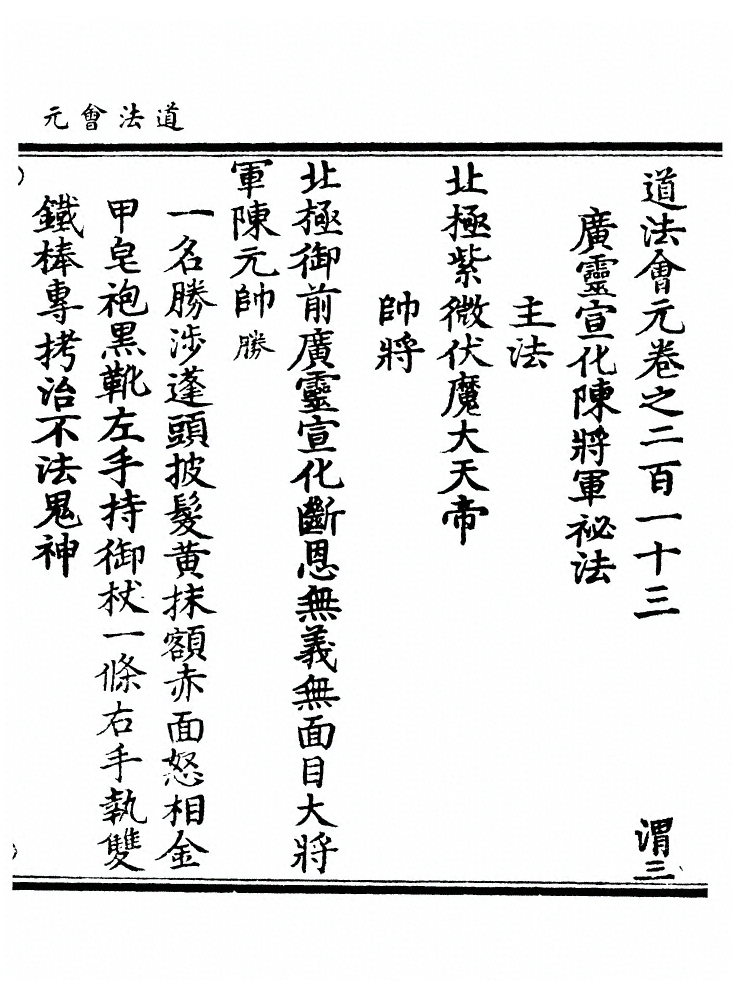 道法會元
道法會元卷之二百一十三
渭三
廣靈宣化陳將軍祕法
主法
北極紫微伏魔大天帝
帥將
北極御前廣靈宣化斷恩無義無面目大將
軍陳元帥勝
一名勝涉蓬頭披髮黄抹額赤面怒相金
甲皂袍黑靴左手持御杖一條右手執雙
鐵棒專拷治不法鬼神